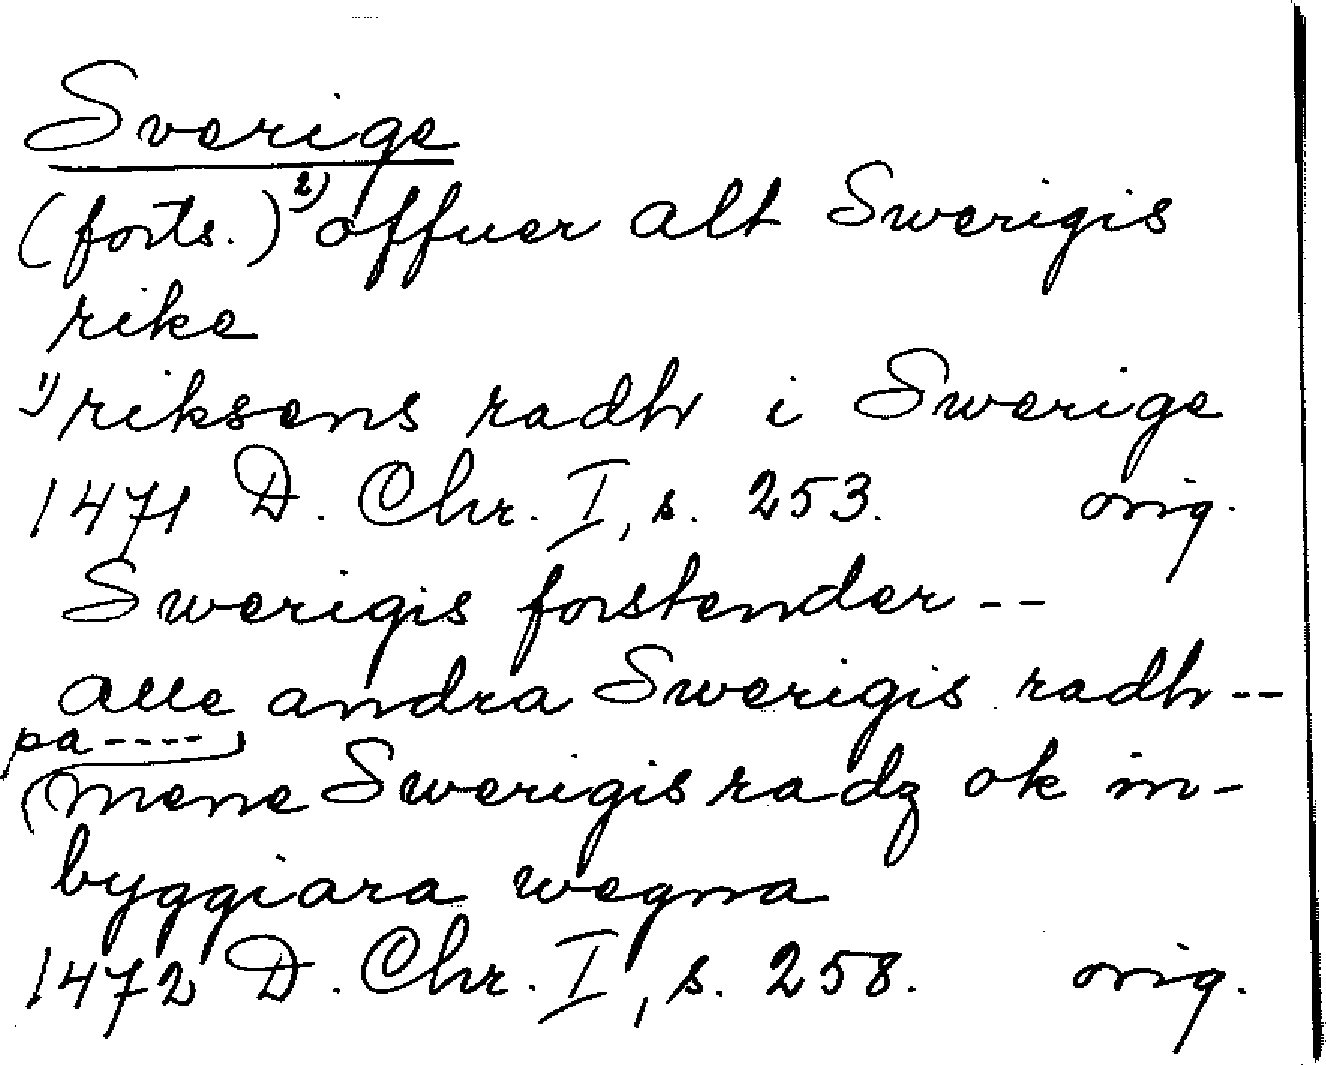 Sverige
(forts.) 2) offuer alt Swerigis
rike
1) riksens radh i Swerige
1471 D. Chr. I, s. 253. orig.
Swerigis forstender --
alle andra Swerigis radh --
pa ----
(mene Swerigis radz ok in-
byggiara wegna
1472 D. Chr. I, s. 258. orig.